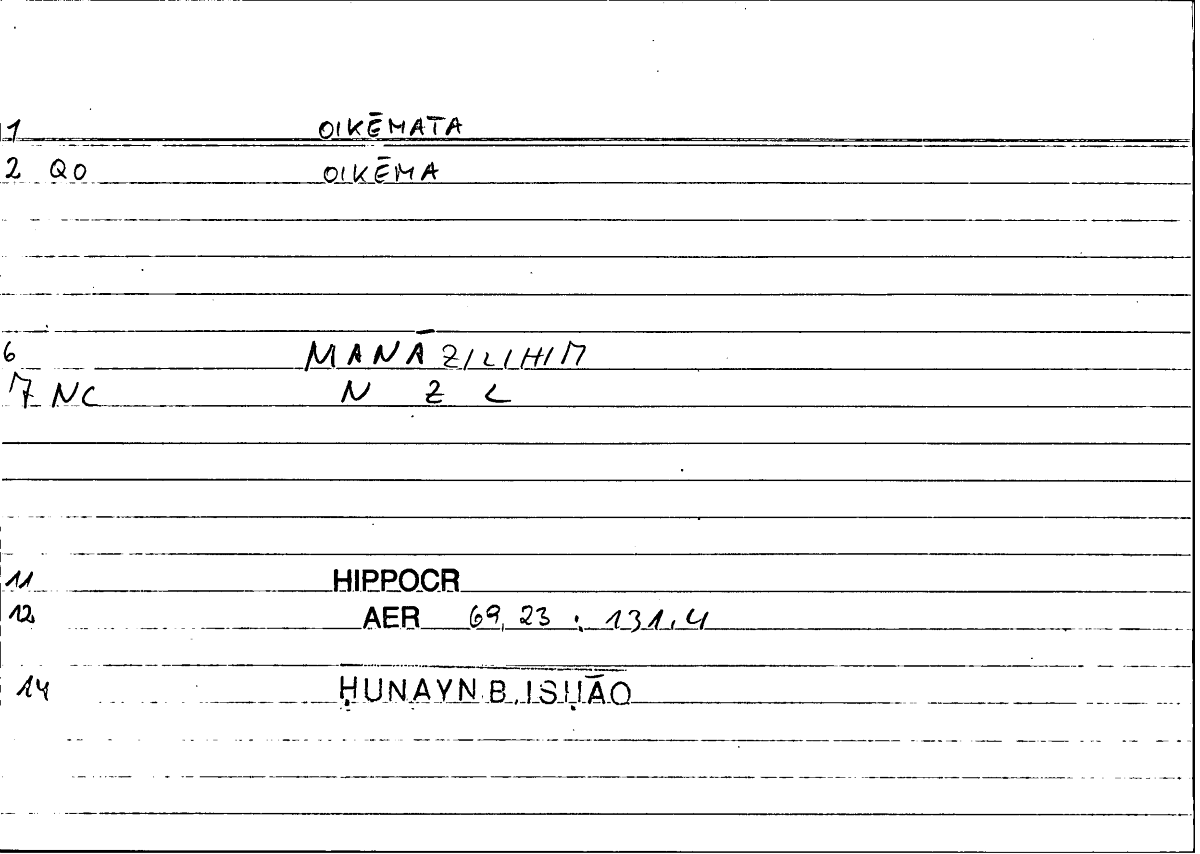 1 OIKĒMATA
2 QO OIKĒMA
6 MANĀZILIHIM
7 NC N Z L
11 HIPPOCR
12 AER 69,23 : 131.4
14 ḤUNAYN B. ISḤĀQ